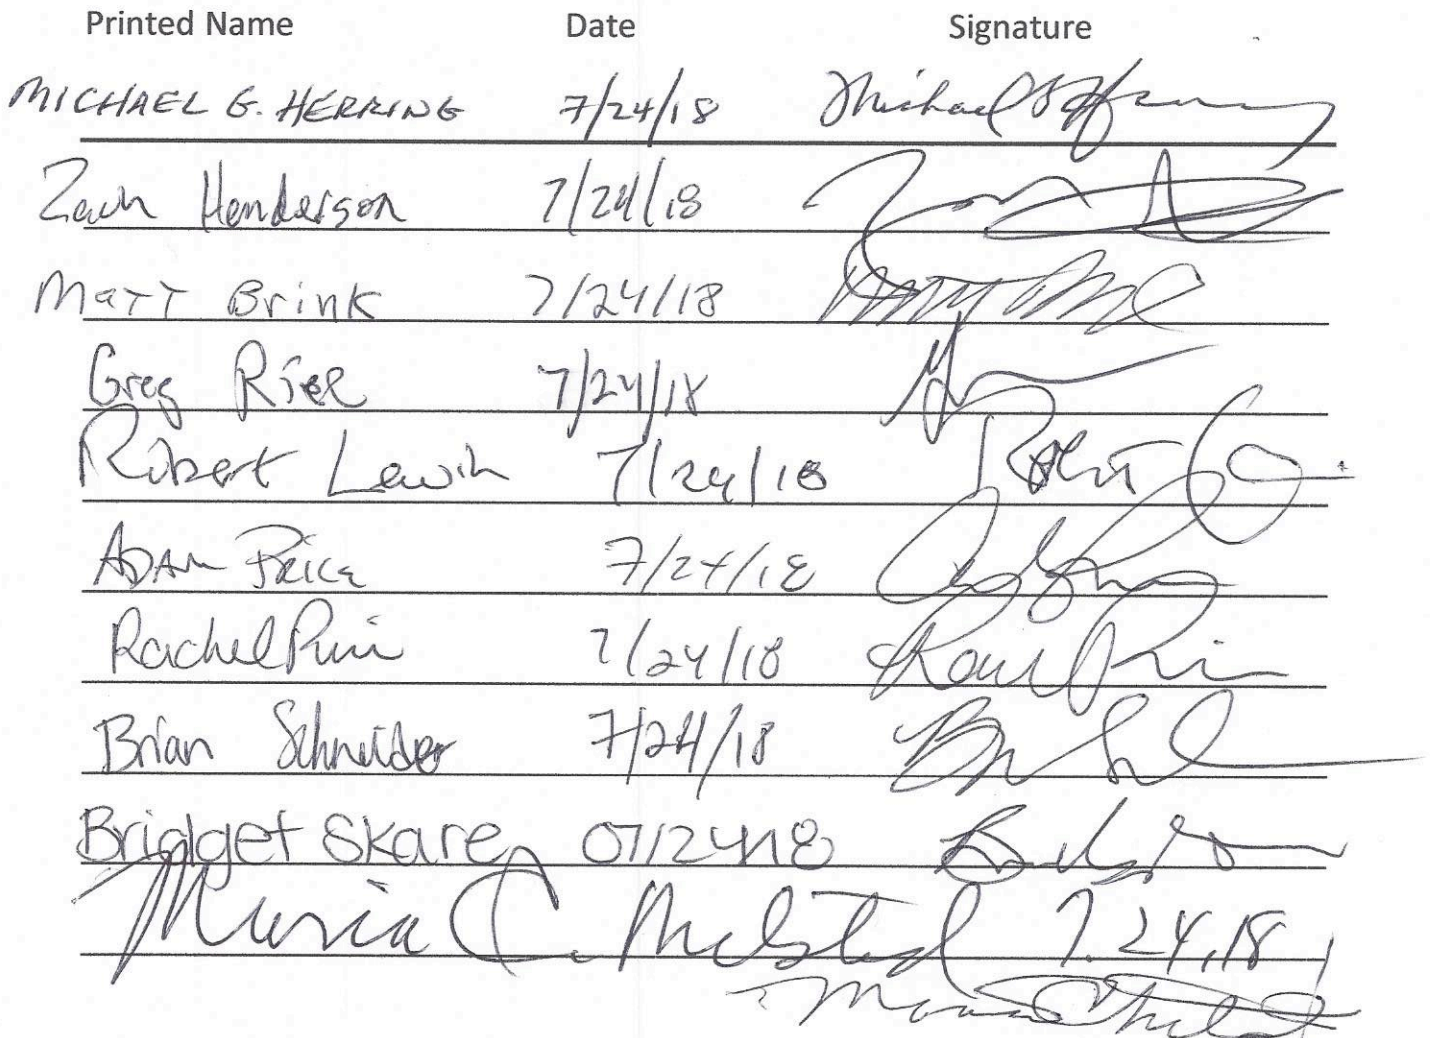 Printed Name Date Signature
MICHAEL G. HERRING 7/24/18 Michael G Herring
Zach Henderson 7/24/18
Matt Brink 7/24/18
Greg Rice 7/24/18
Robert Lewin 7/24/18 Robert
ADAM PRICE 7/24/18
Rachel Prin 7/24/18 Rachel Prin
Brian Schneider 7/24/18
Bridget Skare 07/24/18
Maria C. Melsted 7.24.18